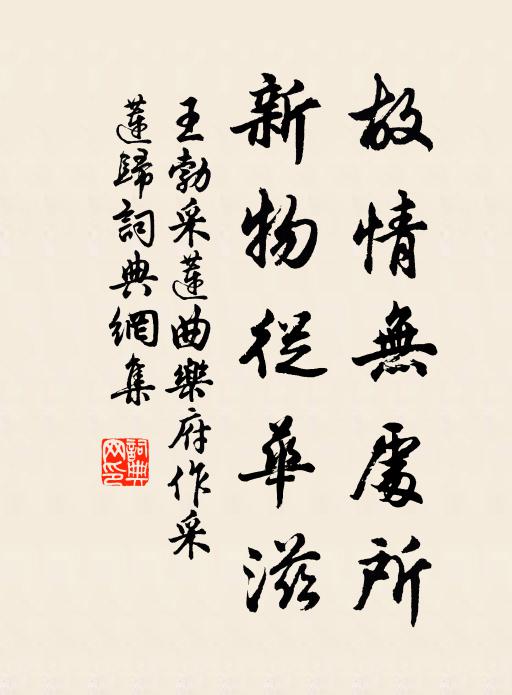 故情無處所
新物從華滋
王勃采蓮曲樂府作采
蓮歸詞典網集
詞典網印